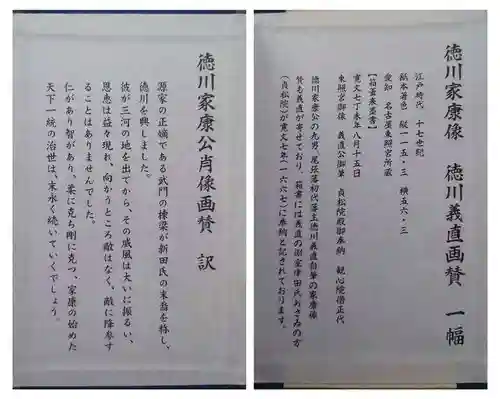 徳川家康公肖像画賛 訳
源家の正嫡である武門の棟梁が新田氏の末裔を称し、
徳川を興しました。
彼が三河の地を出てから、その威風は大いに振るい、
恩恵は益々現れ、向かうところ敵はなく、敵に降参す
ることはありませんでした。
仁があり智があり、柔に克ち剛に克つ、家康の始めた
天下一統の治世は、末永く続いていくでしょう。
徳川家康像 徳川義直画賛 一幅
江戸時代 十七世紀
絹本著色 縦一一五・三 横五六・三
愛知 名古屋東照宮所蔵
【箱蓋表墨書】
寛文七丁未年八月十五日
東照宮御像 義直公御筆 貞松院殿御奉納 観心院僧正代
徳川家康公の九男、尾張藩初代藩主徳川義直自筆の家康像
賛も義直が寄せており、箱書には義直の側室津田氏おさゐの方
(貞松院)が寛文七年(一六六七)に奉納と記されております。